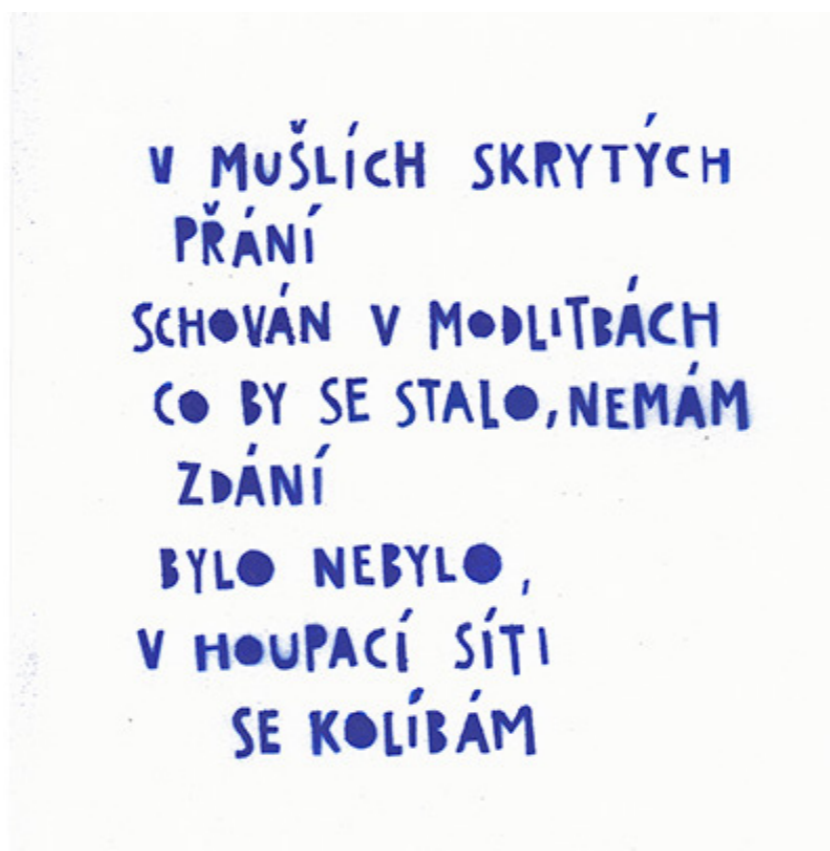 V MUŠLÍCH SKRYTÝCH
PŘÁNÍ
SCHOVÁN V MODLITBÁCH
CO BY SE STALO, NEMÁM
ZDÁNÍ
BYLO NEBYLO,
V HOUPACÍ SÍTI
SE KOLÍBÁM